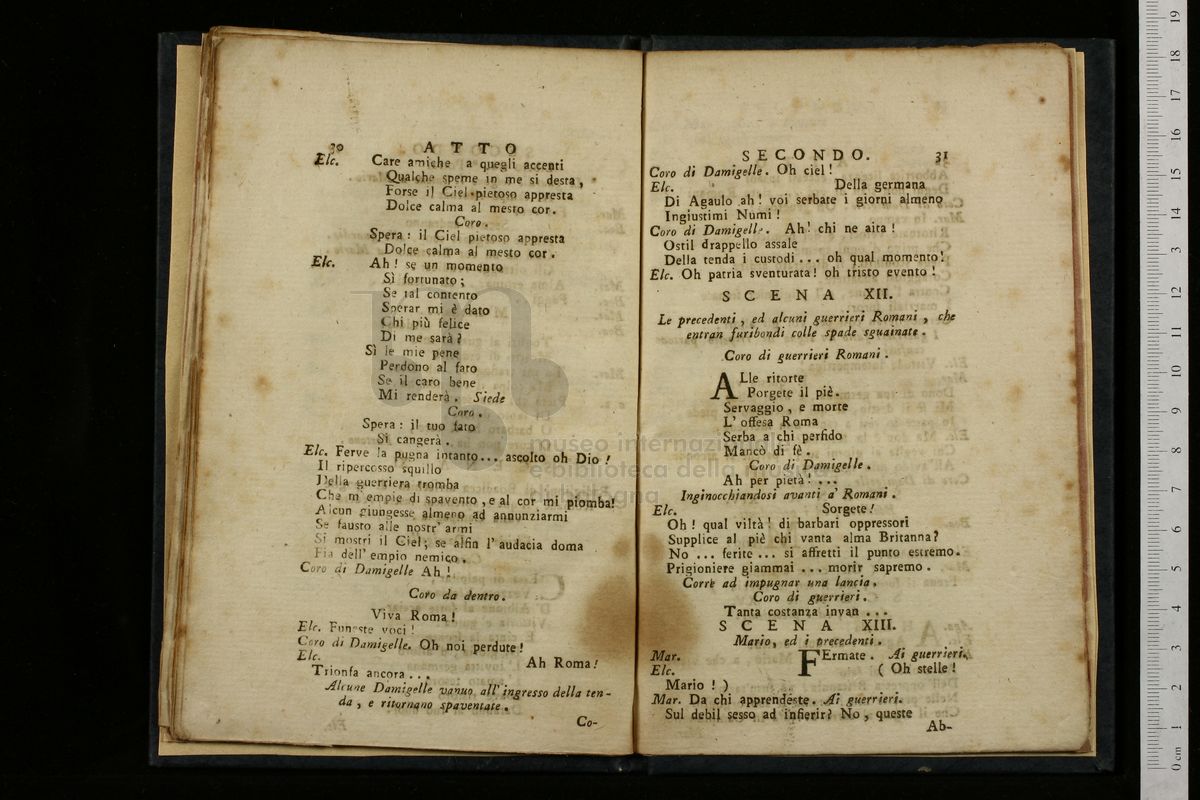 30 ATTO
Elc. Care amiche a quegli accenti
Qualche speme in me si desta,
Forse il Ciel pietoso appresta
Dolce calma al mesto cor.
Coro.
Spera: il Ciel pietoso appresta
Dolce calma al mesto cor.
Elc. Ah! se un momento
Sì fortunato;
Se tal contento
Sperar mi è dato
Chi più felice
Di me sarà?
Sì le mie pene
Perdono al fato
Se il caro bene
Mi renderà. Siede
Coro.
Spera: il tuo fato
Si cangerà.
Elc. Ferve la pugna intanto... ascolto oh Dio!
Il ripercosso squillo
Della guerriera tromba
Che m'empie di spavento, e al cor mi piomba!
Alcun giungesse almeno ad annunziarmi
Se fausto alle nostr'armi
Si mostri il Ciel; se alfin l'audacia doma
Fia dell'empio nemico.
Coro di Damigelle Ah!
Coro da dentro.
Viva Roma!
Elc. Funeste voci!
Coro di Damigelle. Oh noi perdute!
Elc. Ah Roma!
Trionfa ancora...
Alcune Damigelle vanno all'ingresso della ten-
da, e ritornano spaventate.
Co-
SECONDO. 31
Coro di Damigelle. Oh ciel!
Elc. Della germana
Di Agaulo ah! voi serbate i giorni almeno
Ingiustimi Numi!
Coro di Damigelle. Ah! chi ne aita!
Ostil drappello assale
Della tenda i custodi... oh qual momento!
Elc. Oh patria sventurata! oh tristo evento!
SCENA XII.
Le precedenti, ed alcuni guerrieri Romani, che
entran furibondi colle spade sguainate.
Coro di guerrieri Romani.
ALle ritorte
Porgete il piè.
Servaggio, e morte
L'offesa Roma
Serba a chi perfido
Mancò di fè.
Coro di Damigelle.
Ah per pietà!...
Inginocchiandosi avanti a' Romani.
Elc. Sorgete!
Oh! qual viltà! di barbari oppressori
Supplice al piè chi vanta alma Britanna?
No... ferite... si affretti il punto estremo.
Prigioniere giammai... morir sapremo.
Corre ad impugnar una lancia.
Coro di guerrieri.
Tanta costanza invan...
SCENA XIII.
Mario, ed i precedenti.
Mar. FErmate. Ai guerrieri.
Elc. (Oh stelle!
Mario!)
Mar. Da chi apprendeste. Ai guerrieri.
Sul debil sesso ad infierir? No, queste
Ab-
museo internazionale
e biblioteca della musica
di bologna
0 cm 1 2 3 4 5 6 7 8 9 10 11 12 13 14 15 16 17 18 19